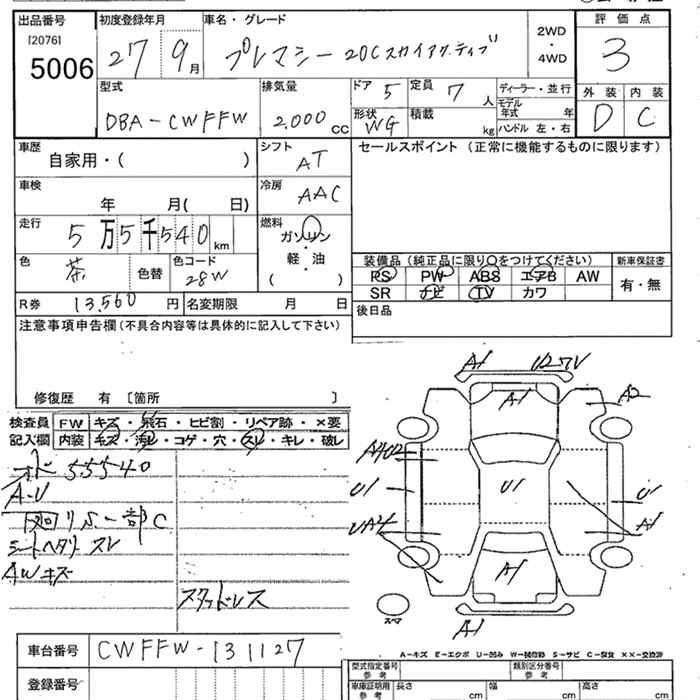 出品番号 初度登録年月 車名・グレード 2WD ・ 4WD 評価点
[2076]
5006 27 9月 プレマシー 20Cスカイアクティブ 3
型式 排気量 ドア 5 定員 7 人 ディーラー・並行 外装 内装
DBA-CWFFW 2.000 cc 形状 WG 積載 kg モデル年式 年 D C
ハンドル 左・右
車歴 自家用・( ) シフト AT セールスポイント (正常に機能するものに限ります)
車検 年 月( 日) 冷房 AAC
走行 5万5千540km 燃料 ガソリン・軽・油 ( )
色 茶 色替 色コード 28W
装備品 (純正品に限り○をつけてください) 新車保証書
PS PW ABS エアB AW 有・無
SR ナビ TV カワ
R券 13,560 円 名変期限 月 日 後日品
注意事項申告欄 (不具合内容等は具体的に記入して下さい)
修復歴 有 〔箇所 〕
検査員 FW キズ・飛石・ヒビ割・リペア跡・×要
記入欄 内装 キズ・汚レ・コゲ・穴・スレ・キレ・破レ
オド 55540
A-U
廻りS 一部C
シートヘタリ スレ
AWキズ
スタッドレス
A1 U27V
A1 A2
U1 U1 U1
A1
A1
A1
スペア
A-キズ E-エクボ U-凹み W-補修跡 S-サビ C-腐食 ××-交換済
車台番号 CWFFW-131127
登録番号
型式指定番号 参考 類別区分番号 参考
車庫証明用 参考 長さ cm 幅 cm 高さ cm